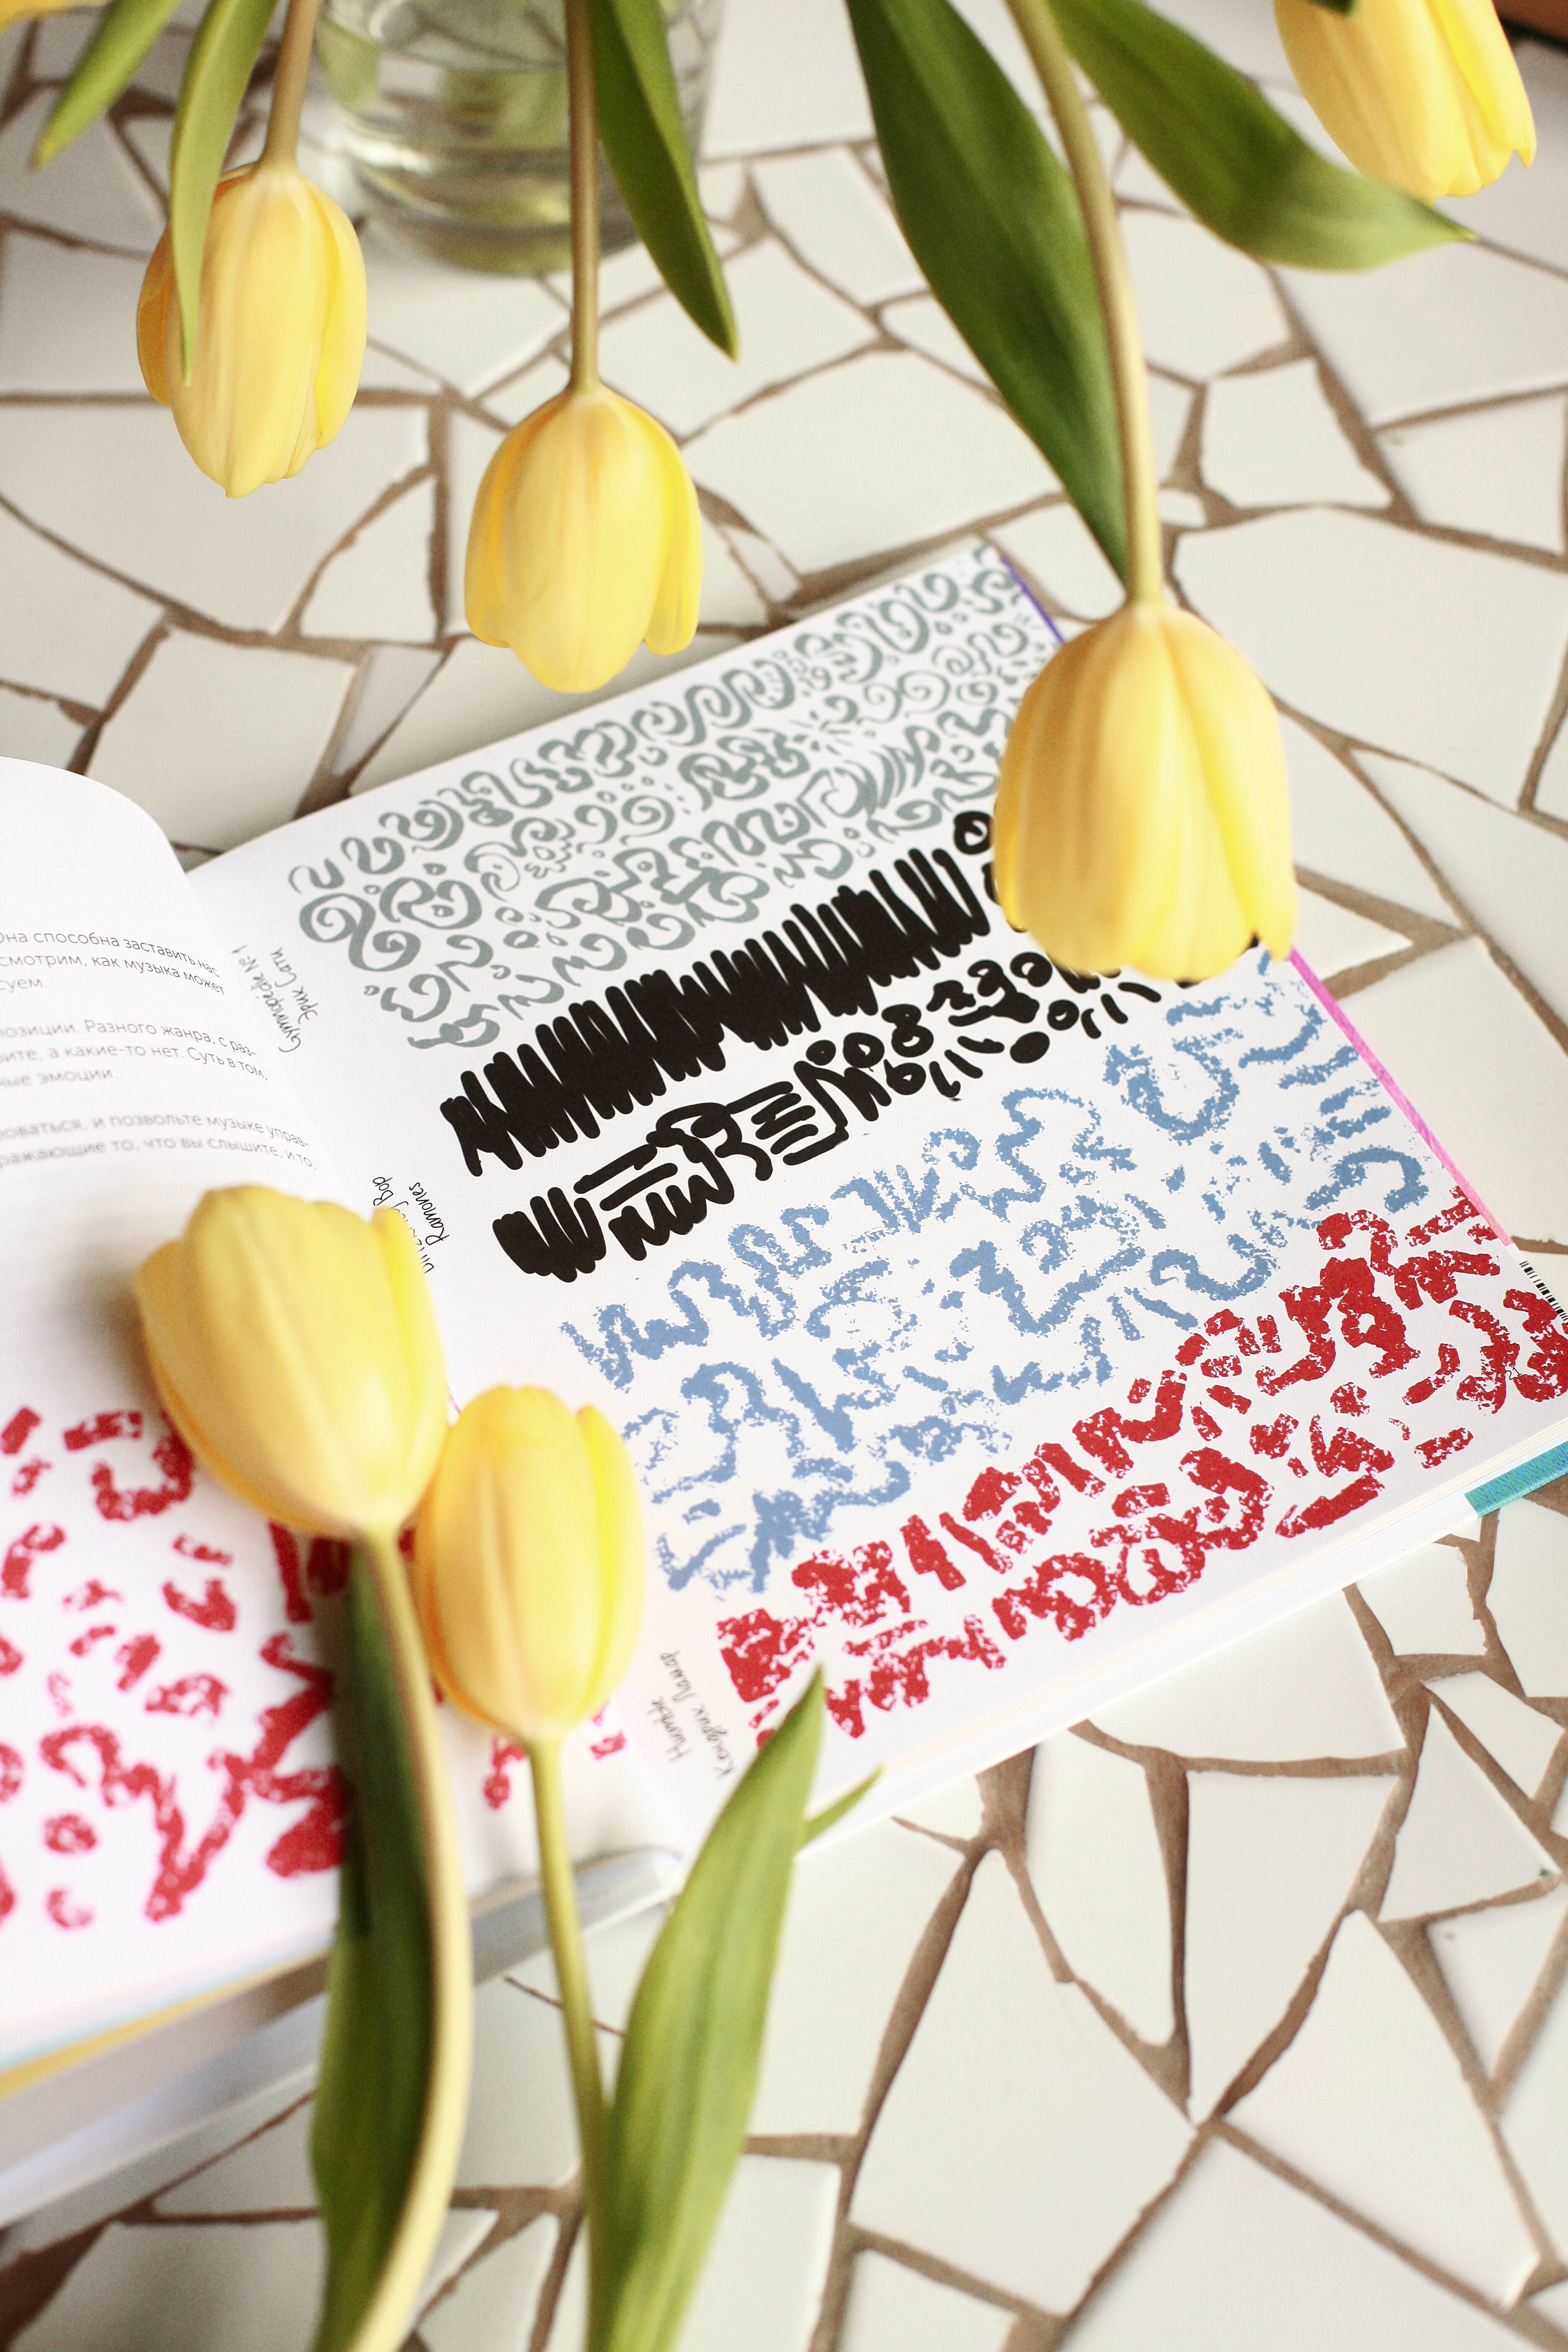 Она способна заставить нас
смотрим, как музыка может
суем.
позиции. Разного жанра, с раз-
вите, а какие-то нет. Суть в том,
ные эмоции.
роваться, и позвольте музыке управ-
ражающие то, что вы слышите, и то,
Gymnopedie № 1
Эрик Сати
Bop
Ramones
Humble
Кендрик Ламар